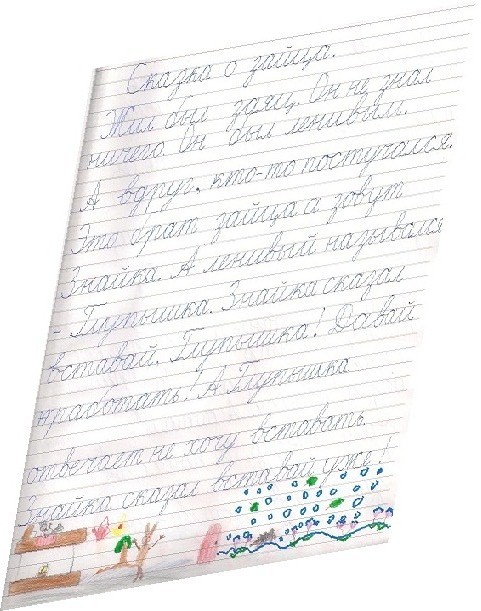 Сказка о зайца.
Жил был заяц. Он не знал
ничего. Он был ленивым.
А вдруг, кто-то постучался.
Это брат зайца а зовут
Знайка. А ленивый назывался
- Глупышка. Знайка сказал
вставай, Глупышка! Давай
работать! А Глупышка
отвечает не хочу вставать.
Знайка сказал вставай уже!